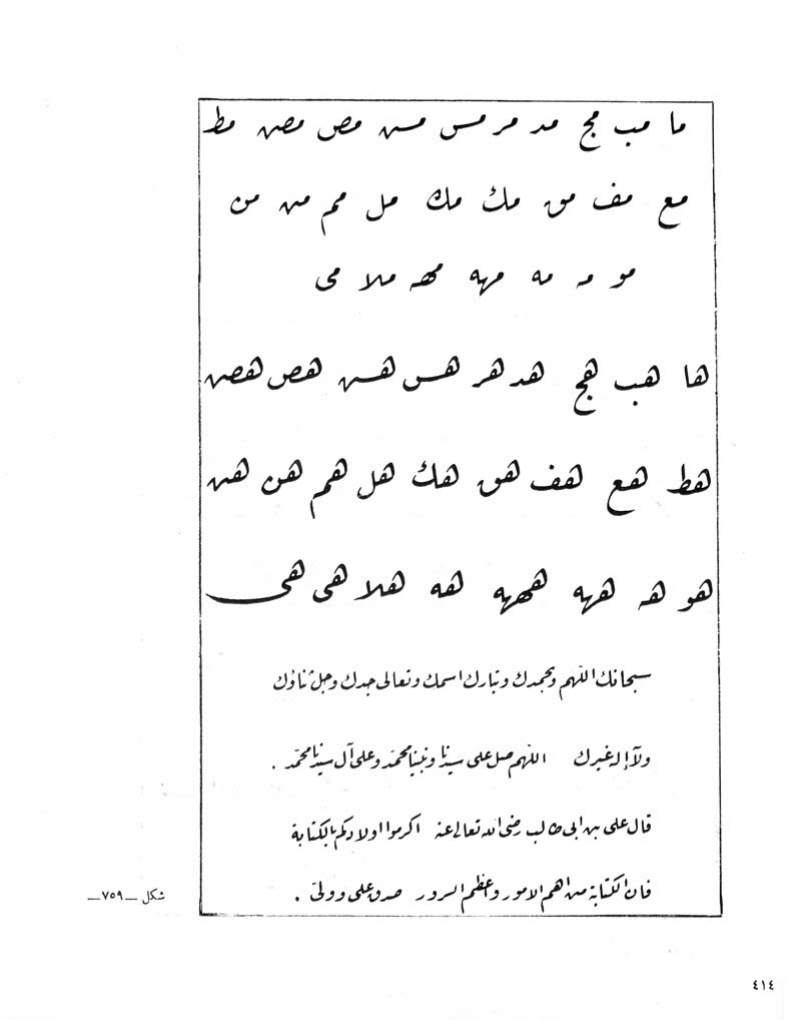 ما مب مج مد مر مس مس مص مص مط
مع مف مق مك مك مل مم من من
مو مه مه مهه مهه ملا مى
ها هب هج هد هر هس هس هص هص
هط هع هف هق هك هل هم هن هن
هو هه ههه ههه هه هلا هى هى
سبحانك اللهم وبحمدك وتبارك اسمك وتعالى جدك وجل ثناؤك
ولآ إله غيرك اللهم صل على سيدنا ونبينا محمد وعلى آل سيدنا محمد .
قال على بن ابى طالب رضى الله تعالى عنه اكرموا اولادكم بالكتابة
فان الكتابة من اهم الامور واعظم السرور صدق على وولىّ .
شكل ــ ٧٥٩ ــ
٤١٤